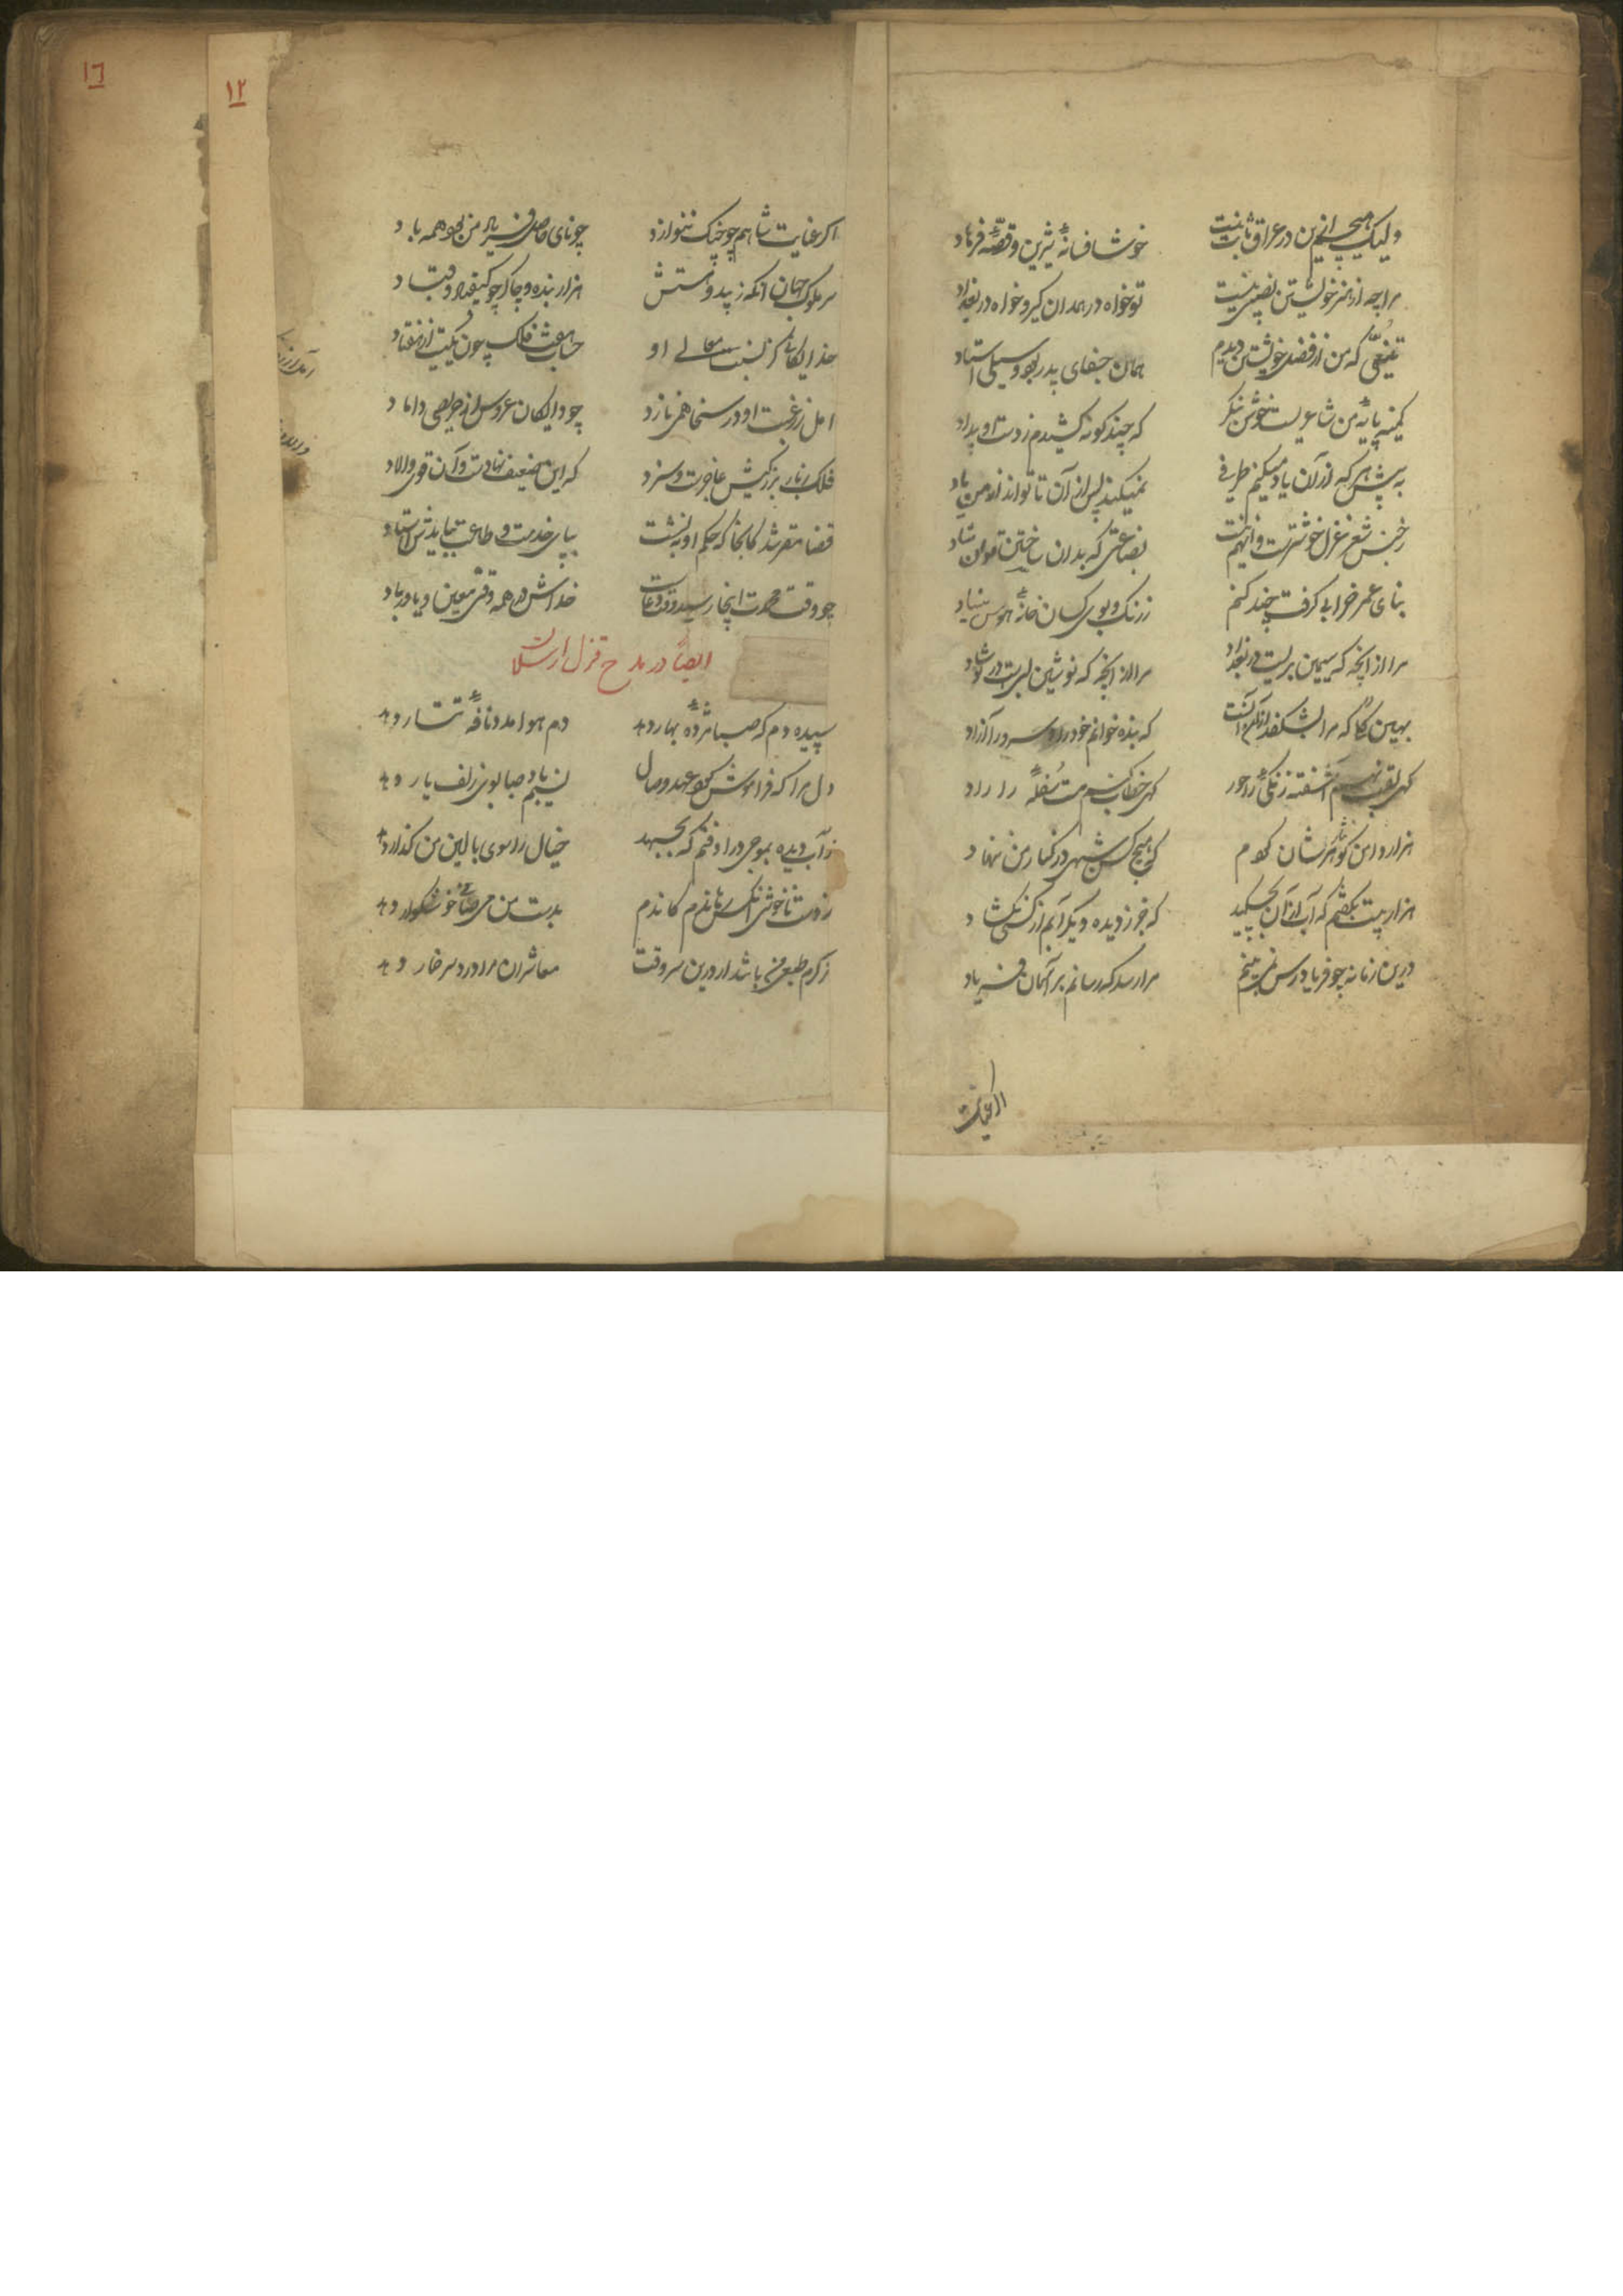 ولیک هیچ ازینم در عراق ثابت نیست
خوشا فسانه شیرین و قصه فرهاد
مرا چه از هنر خویشتن نصیبی نیست
تو خواه در همدان گیر و خواه در بغداد
تمتعی که من از فضل خویشتن دیدم
همان جفای پدر بود و سیلی استاد
کمینه پایه من شاعریست خود بنگر
که چند گونه کشیدم ز دست او بیداد
به پیش هر که ازان یاد میکنم طرفی
نمیکند پس ازان تا تواند از من یاد
ز جنس شعر غزل خوشترست و آنهم نیست
بضاعتی که بدان ساختن توان
بنای عمر خرابی گرفت چند کنم
ز رنگ و بوی کسان خانه هوس بنیاد
مرا از آنچه که سیمین بریست در بغداد
مرا از آنچه که نوشین لبیست در نوشاد
بهین گلی که مرا بشکفد ازو آنست
که بنده خوانم خود را و سرو را آزاد
گهی لقب نهم آشفته زنگئی را حور
گهی خطاب کنم مست سفله را راد
هزار دامن گوهر نثارشان کردم
که هیچکس شبهی در کنار من نهاد
هزار بیت بگفتم که آب ازان بچکید
که جز ز دیده دگر آبم از کسی نگشاد
درین زمانه چو فریادرس نمی بینم
مرا رسد که رسانم بر آسمان فریاد
اگر عنایت شاهم چو چنگ ننوازد
چو نای حاصل فریاد من بود همه باد
سر ملوک جهان آنکه زیبد
هزار بنده و چاکر چو کیقباد و قباد
خدایگانی کز نسبت معالی او
حساب هفت فلک چون یکیست از هفتاد
امل ز رغبت او در سخا همی نازد
چو دایگان عروس از حریصی داماد
فلک ز بار بزرگیش عاجزست و سزد
که این ضعیف نهادست و آن قوی ولاد
قضا مقرر شد کانجا که حکم او بنشست
بپای خدمت و طاعت بباید
چو وقت اینجا رسید وقت دعاست
خداش در همه وقتی معین و یاور باد
ایضا در مدح قزل ارسلان
سپیده دم که صبا مژده بهار دهد
دم هوا مدد نافه تتار دهد
دل مرا که فراموش کرد عهد وصال
نسیم باد صبا بوی زلف یار دهد
ز آب دیده بموجی در اوفتم که بجهد
خیال را سوی بالین من گذار دهد
ز دست ناخوشی آنکس رهاندم کاندم
بدست من می صافی خوشگوار دهد
ز کرم طبعی باشد ار درین سر وقت
معاشران مرا درد سر خمار دهد
اگر عنایت
۱۲
۱٦